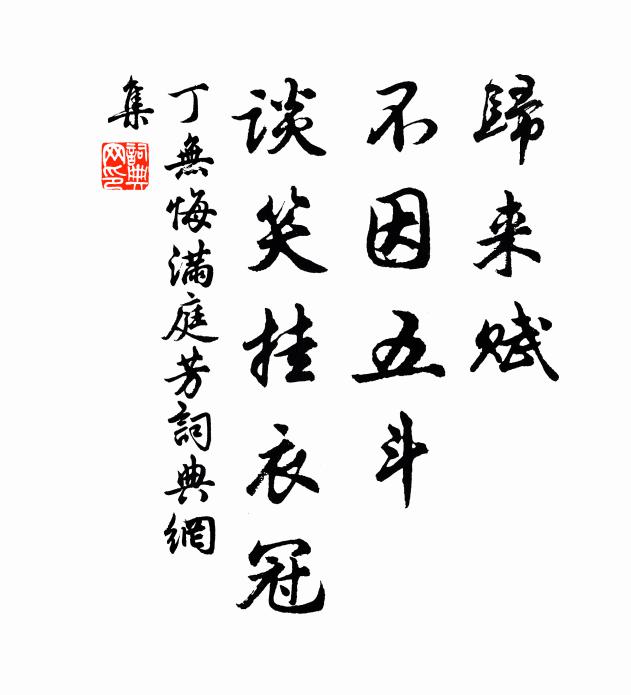 歸来赋
不因五斗
談笑挂衣冠
丁無悔滿庭芳詞典網
集
詞典
网印